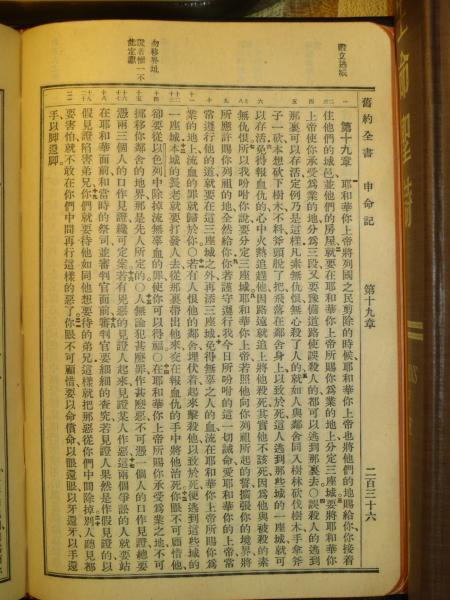 舊約全書 申命記 第十九章 二百三十六
設立逃城
第十九章 耶和華你上帝將列國之民剪除的時候耶和華你上帝也將他們的地賜給你你接着
住他們的城邑並他們的房屋就要在耶和華你上帝所賜你爲業的地上分定三座城要將耶和華你
上帝使你承受爲業的地分爲三段又要豫備道路使誤殺人的都可以逃到那裏去〇誤殺人的逃到
那裏可以存活定例乃是這樣凡素無仇恨無心殺了人的就如人與鄰舍同入樹林砍伐樹木手拿斧
子一砍本想砍下樹木不料斧頭脫了把飛落在鄰舍身上以致於死這人逃到那些城的一座城就可
以存活免得報血仇的心中火熱追趕他因路遠就追上將他殺死其實他不該死因爲他與被殺的素
無仇恨所以我吩咐你說要分定三座城耶和華你上帝若照他向你列祖所起的誓擴張你的境界將
所應許賜你列祖的地全然給你你若謹守遵行我今日所吩咐的這一切誡命愛耶和華你的上帝常
常遵行他的道就要在這三座城之外再添三座城免得無辜之人的血流在耶和華你上帝所賜你爲
業的地上流血的罪就歸於你〇若有人恨他的鄰舍埋伏着起來擊殺他以致於死便逃到這些城的
一座城本城的長老就要打發人去從那裏帶出他來交在報血仇的手中將他治死你眼不可顧惜他
卻要從以色列中除掉流無辜血的罪使你可以得福〇在耶和華你上帝所賜你承受爲業之地不可
挪移你鄰舍的地界那是先人所定的〇人無論犯甚麼罪作甚麼惡不可憑一個人的口作見證總要
憑兩三個人的口作見證纔可定案若有兇惡的見證人起來見證某人作惡這兩個爭訟的人就要站
在耶和華面前和當時的祭司並審判官面前審判官要細細的查究若見證人果然是作假見證的以
假見證陷害弟兄你們就要待他如同他想要待的弟兄這樣就把那惡從你們中間除掉別人聽見都
要害怕就不敢在你們中間再行這樣的惡了你眼不可顧惜要以命償命以眼還眼以牙還牙以手還
手以腳還腳
勿移界址
證者惟一不
能定讞